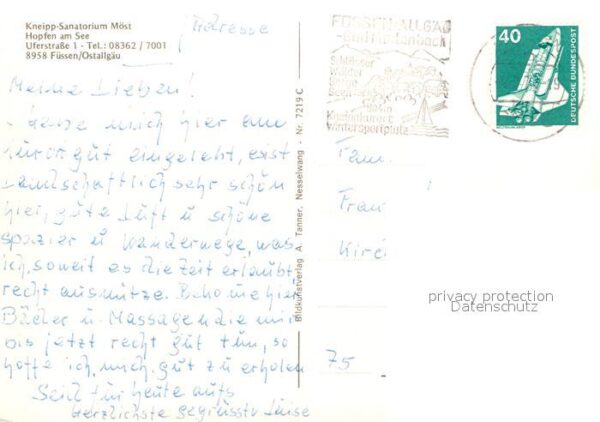 Kneipp-Sanatorium Möst
Hopfen am See
Uferstraße 1 - Tel.: 08362 / 7001
8958 Füssen/Ostallgäu
Adresse
Meine Lieben!
Habe mich hier am
Kurort gut eingelebt, es ist
Landschaftlich sehr schön
hier, gute Luft u schöne
spazier u Wanderwege, was
ich, soweit es die Zeit erlaubt,
recht ausnütze. Bekomme hier
Bäder u. Massagen die mir
bis jetzt recht gut tun, so
hoffe ich, mich gut zu erholen
Seid für heute aufs
herzlichste gegrüsst Luise
Bildkunstverlag A. Tanner, Nesselwang - Nr. 7219 C
FÜSSEN/ALLGÄU
Wälder
Kneippkuren
Wintersportplatz
40
DEUTSCHE BUNDESPOST
Fam.
Frau
75
privacy protection
Datenschutz